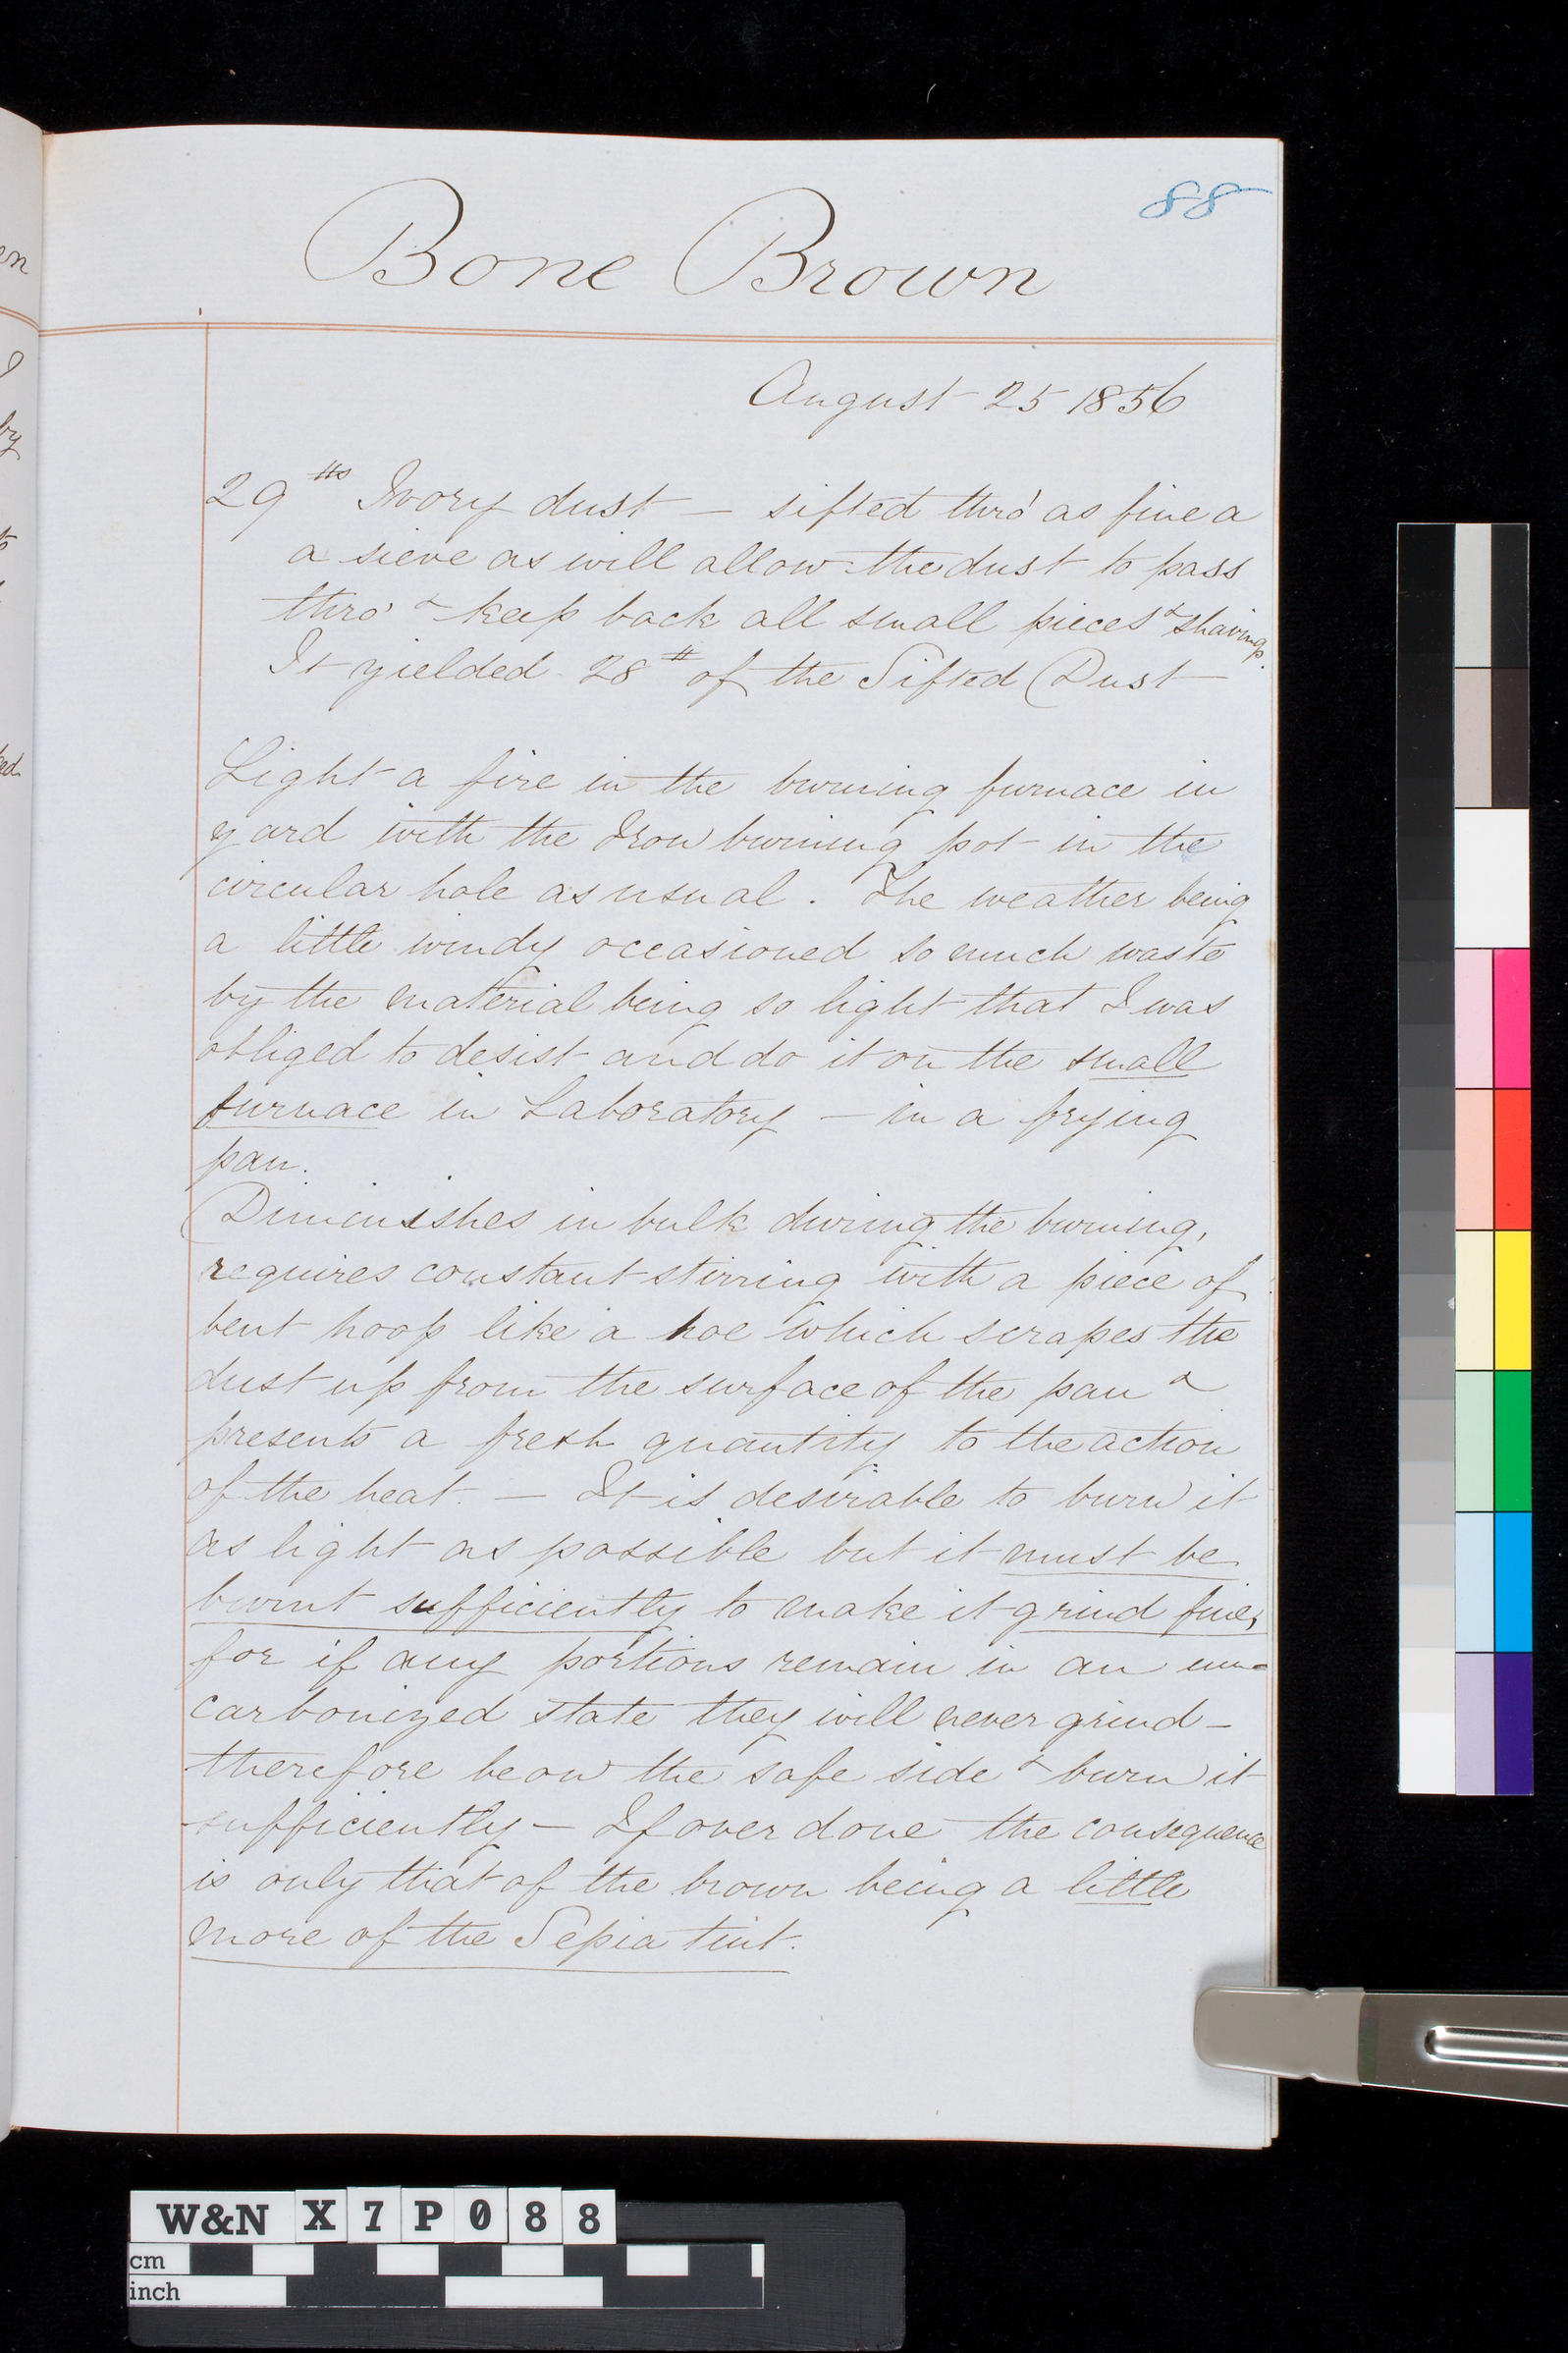 88
Bone Brown
August 25 1856
29 lbs Ivory dust — sifted thro' as fine a
a sieve as will allow the dust to pass
thro' & keep back all small pieces & shavings.
It yielded 28 lb of the Sifted Dust
Light a fire in the burning furnace in
yard with the Iron burning pot in the
circular hole as usual. The weather being
a little windy occasioned so much waste
by the material being so light that I was
obliged to desist and do it on the small
furnace in Laboratory — in a frying
pan.
Diminishes in bulk during the burning,
requires constant stirring with a piece of
bent hoop like a hoe which scrapes the
dust up from the surface of the pan &
presents a fresh quantity to the action
of the heat. — It is desirable to burn it
as light as possible but it must be
burnt sufficiently to make it grind fine,
for if any portions remain in an un=
carbonized state they will never grind —
therefore be on the safe side & burn it
sufficiently — If over done the consequence
is only that of the brown being a little
more of the Sepia tint.
en
by
to
ked
W&N X7P088
cm
inch